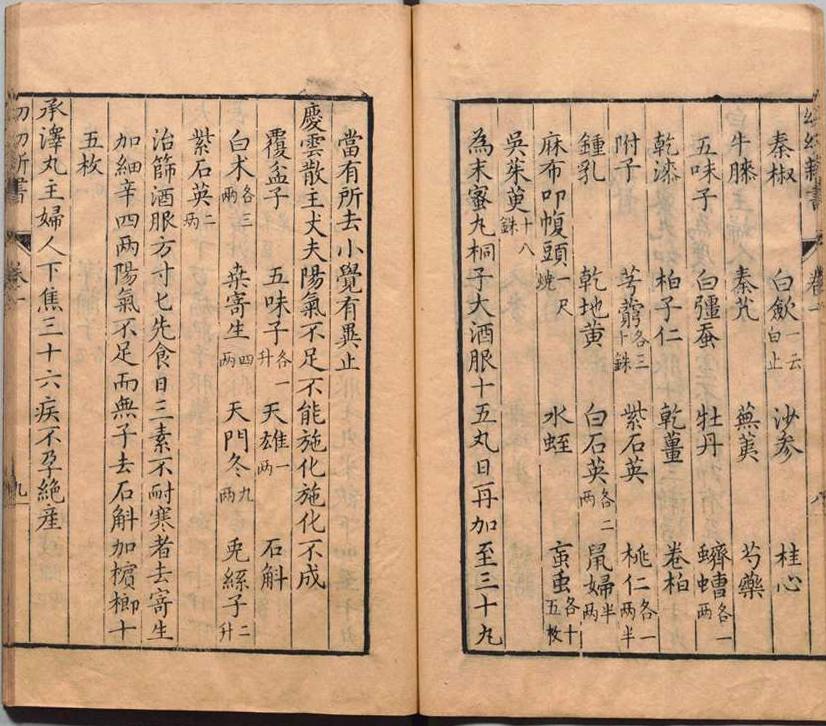 秦椒 白歛一云白止 沙参 桂心
牛膝 秦艽 蕪荑 芍藥
五味子 白殭蚕 牡丹 蠐螬各一兩
乾漆 柏子仁 乾薑 卷柏
附子 芎藭各三十銖 紫石英 桃仁各一兩半
鍾乳 乾地黄 白石英各二兩 鼠婦半兩
麻布叩幞頭一尺燒 水蛭 䖟蟲各十五枚
吳茱萸十八銖
為末蜜丸桐子大酒服十五丸日再加至三十丸
當有所去小覺有異止
慶雲散主丈夫陽氣不足不能施化施化不成
覆盆子 五味子各一升 天雄一兩 石斛
白术各三兩 桒寄生四兩 天門冬九兩 兎絲子二升
紫石英二兩
治篩酒服方寸匕先食日三素不耐寒者去寄生
加細辛四兩陽氣不足而無子去石斛加檳榔十
五枚
承澤丸主婦人下焦三十六疾不孕絶産
卷一 九